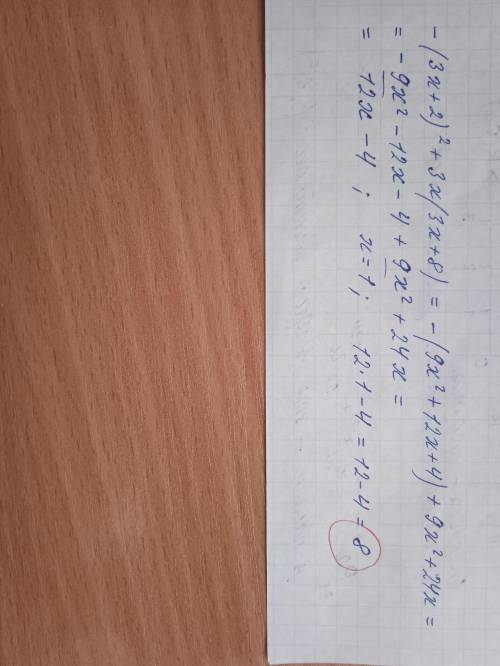 -(3x+2)² + 3x(3x+8) = -(9x²+12x+4)+9x²+24x =
= -9x² - 12x - 4 + 9x² + 24x =
= 12x - 4 ; x=1; 12·1-4 = 12-4 = 8